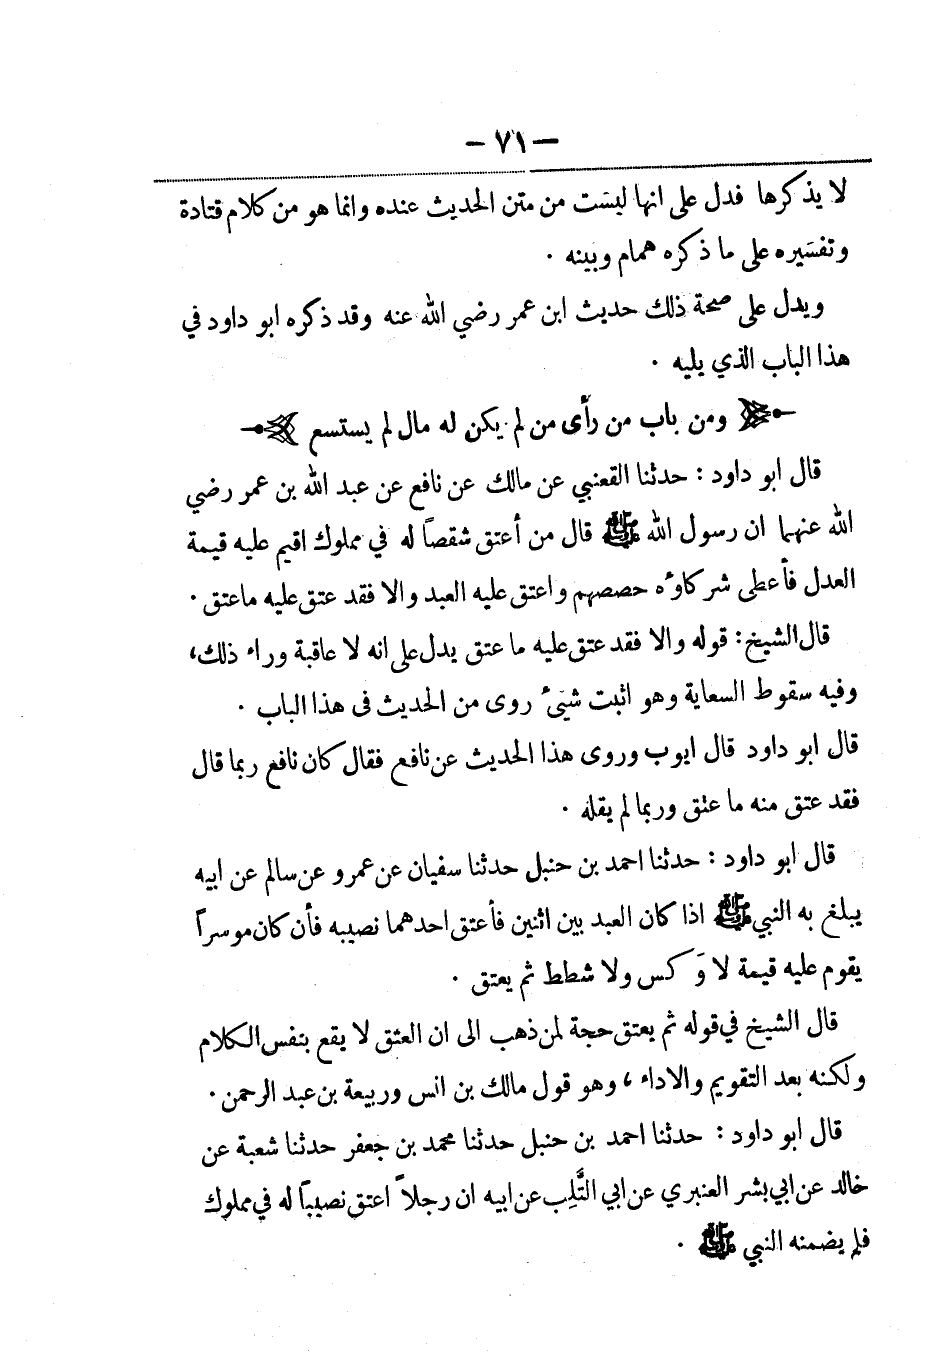 — ٧١ —
لا يذكرها فدل على انها ليست من متن الحديث عنده وانما هو من كلام قتادة
وتفسيره على ما ذكره همام وبينه .
ويدل على صحة ذلك حديث ابن عمر رضي الله عنه وقد ذكره ابو داود في
هذا الباب الذي يليه .
ومن باب من رأى من لم يكن له مال لم يستسع
قال ابو داود : حدثنا القعنبي عن مالك عن نافع عن عبد الله بن عمر رضي
الله عنهما ان رسول الله ﷺ قال من أعتق شقصاً له في مملوك اقيم عليه قيمة
العدل فأعطى شركاؤه حصصهم واعتق عليه العبد والا فقد عتق عليه ماعتق .
قال الشيخ : قوله والا فقد عتق عليه ما عتق يدل على انه لا عاقبة وراء ذلك ،
وفيه سقوط السعاية وهو اثبت شيئ روى من الحديث فى هذا الباب .
قال ابو داود قال ايوب وروى هذا الحديث عن نافع فقال كان نافع ربما قال
فقد عتق منه ما عتق وربما لم يقله .
قال ابو داود : حدثنا احمد بن حنبل حدثنا سفيان عن عمرو عن سالم عن ابيه
يبلغ به النبي ﷺ اذا كان العبد بين اثنين فأعتق احدهما نصيبه فأن كان موسراً
يقوم عليه قيمة لا وَكس ولا شطط ثم يعتق .
قال الشيخ في قوله ثم يعتق حجة لمن ذهب الى ان العتق لا يقع بنفس الكلام
ولكنه بعد التقويم والاداء ، وهو قول مالك بن انس وربيعة بن عبد الرحمن .
قال ابو داود : حدثنا احمد بن حنبل حدثنا محمد بن جعفر حدثنا شعبة عن
خالد عن ابي بشر العنبري عن ابي التَّلِب عن ابيه ان رجلاً اعتق نصيباً له في مملوك
فلم يضمنه النبي ﷺ .